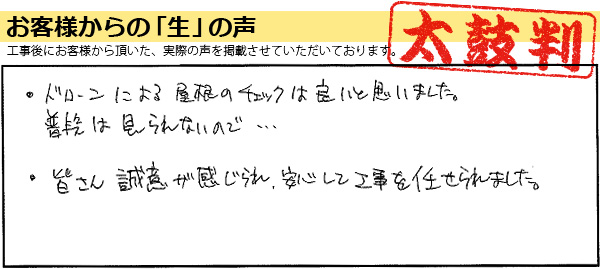 お客様からの「生」の声
工事後にお客様から頂いた、実際の声を掲載させていただいております。
太鼓判
・ドローンによる屋根のチェックは良いと思いました。
普段は見られないので…
・皆さん誠意が感じられ、安心して工事を任せられました。